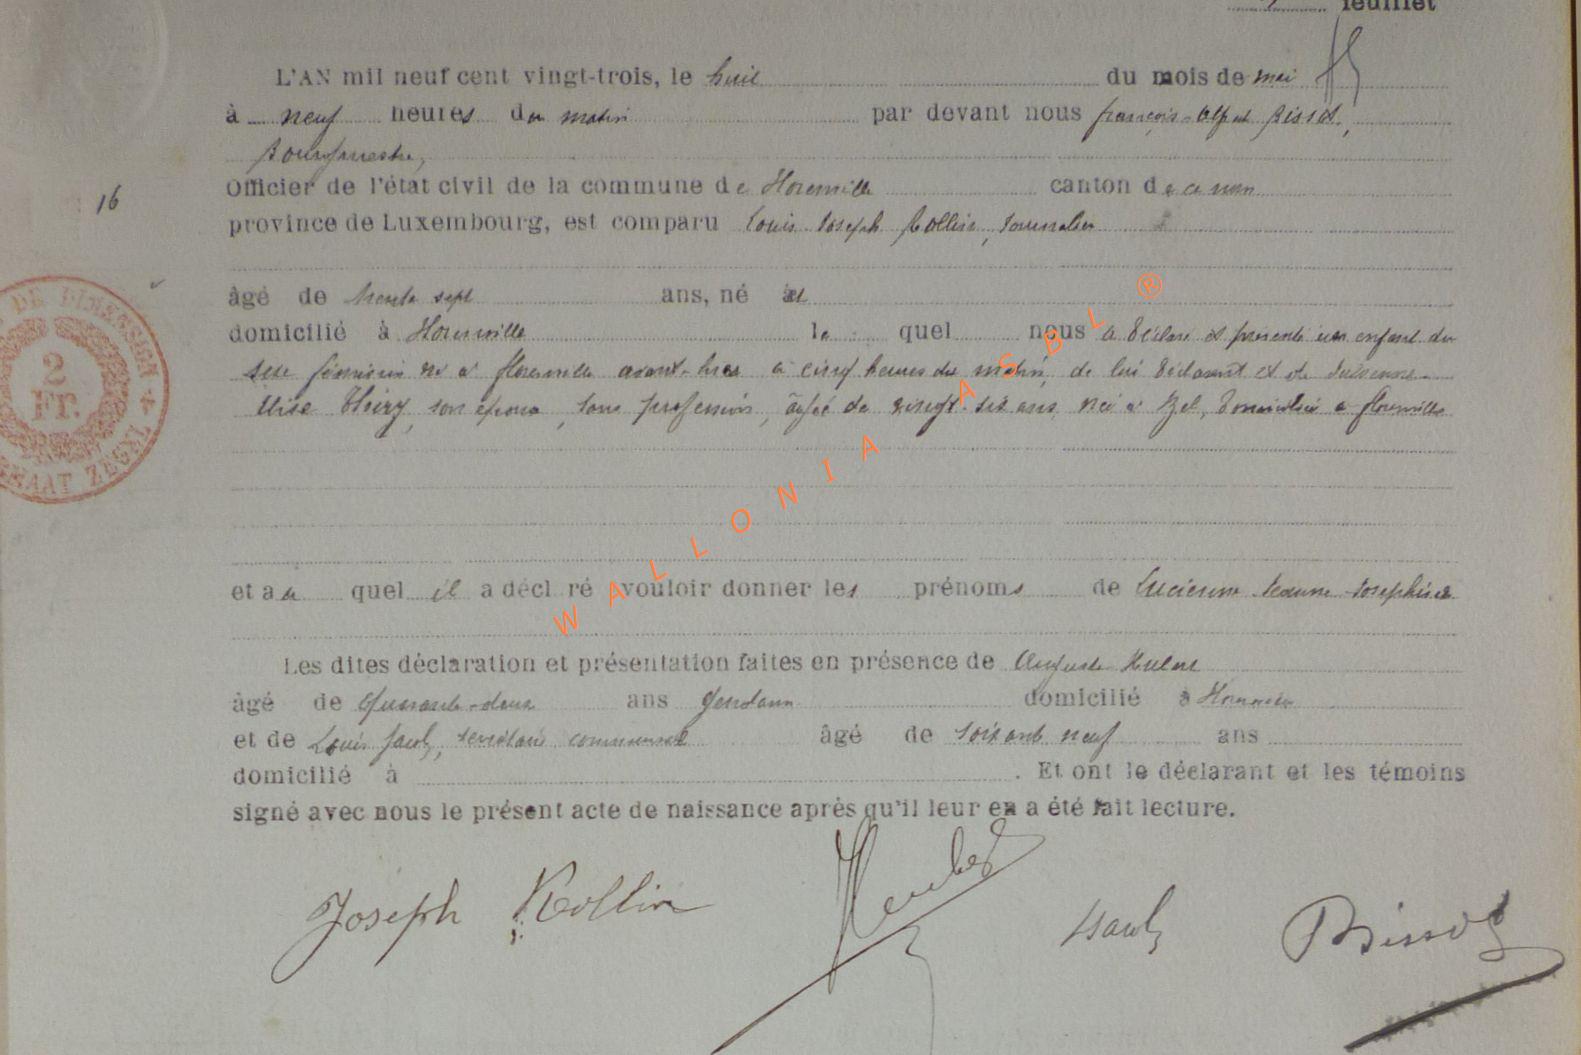 feuillet
L'AN mil neuf cent vingt-trois, le huit du mois de mai
à neuf heures du matin par devant nous françois-Alfred Bissot,
Bourgmestre,
Officier de l'état civil de la commune de Florenville canton de ce nom
16
province de Luxembourg, est comparu Louis Joseph Collin, Journalier
âgé de trente sept ans, né et
domicilié à Florenville lequel nous a déclaré et présenté un enfant du
sexe féminin né à florenville avant-hier à cinq heures du matin, de lui déclarant et de
Elise Thiry, son épouse, sans profession, âgée de vingt-six ans, née à Izel, domiciliée à florenville
2
Fr.
et au quel il a décl ré vouloir donner les prénoms de Lucienne Jeanne Josephine
Les dites déclaration et présentation faites en présence de Auguste
âgé de quarante-deux ans gendarme domicilié à
et de Louis secrétaire communal âgé de soixante neuf ans
domicilié à . Et ont le déclarant et les témoins
signé avec nous le présent acte de naissance après qu'il leur en a été fait lecture.
Joseph Kollin Bissot
WALLONIA ASBL ®